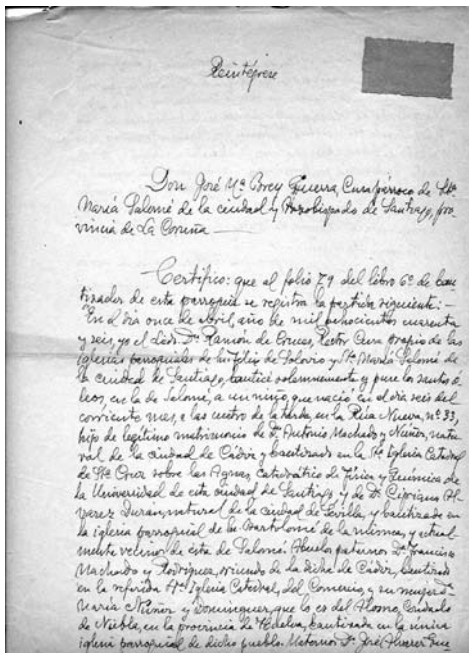 Reintégrese
Don José Mª Brey Guerra, Cura párroco de Stª
María Salomé de la ciudad y Arzobispado de Santiago, pro-
vincia de La Coruña —
Certifico: que al folio 79 del libro 6º de bau-
tizados de esta parroquia se registra la partida siguiente: —
En el día once de abril, año de mil ochocientos cuarenta
y seis, yo el Licdo. D. Ramón de Cruces, Rector Cura propio de las
iglesias parroquiales de Sn Felix de Solovio y Stª María Salomé de
la ciudad de Santiago, bauticé solemnemente y puse los santos o-
leos, en la de Salomé, a un niño, que nació en el día seis del
corriente mes, a las cuatro de la tarde, en la Rúa Nueva, nº 33,
hijo de legítimo matrimonio de D. Antonio Machado y Núñez, natu-
ral de la ciudad de Cádiz y bautizado en la Stª Iglesia Catedral
de Stª Cruz sobre las Aguas, Catedrático de Física y Química de
la Universidad de esta ciudad de Santiago, y de Dª Cipriana Al-
varez Duran, natural de la ciudad de Sevilla, y bautizada en
la iglesia parroquial de Sn Bartolomé de la misma, y actual
mente vecinos de esta de Salomé. Abuelos paternos D. Francisco
Machado y Rodríguez, oriundo de la dicha de Cádiz, bautizado
en la referida Stª Iglesia Catedral, del Comercio, y su mujer Dª
María Núñez y Dominguez, que lo es del Alosno, Condado
de Niebla, en la provincia de Huelva, bautizada en la única
iglesia parroquial de dicho pueblo. Maternos D. José Alvarez